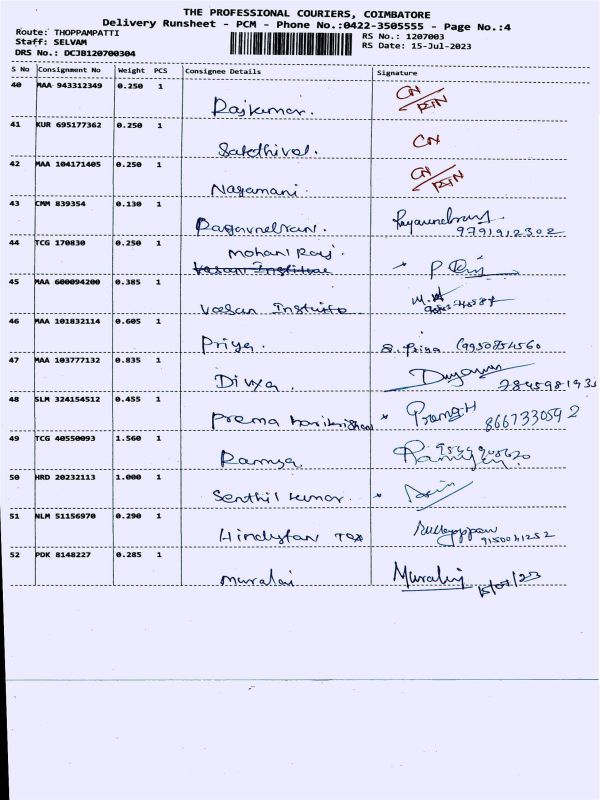 THE PROFESSIONAL COURIERS, COIMBATORE
Delivery Runsheet - PCM - Phone No.:0422-3505555 - Page No.:4
Route: THOPPAMPATTI RS No.: 1207003
Staff: SELVAM RS Date: 15-Jul-2023
DRS No.: DCJB120700304
S No Consignment No Weight PCS Consignee Details Signature
40 MAA 943312349 0.250 1 Rajkumar. CN/RTN
41 KUR 695177362 0.250 1 Sakthivel. CN
42 MAA 104171405 0.250 1 Nagamani. CN/RTN
43 CMM 839354 0.130 1 9791912302
44 TCG 170830 0.250 1 Mohan Raj
Vasan Institute
45 MAA 600094200 0.385 1 Vasan Institute
46 MAA 101832114 0.605 1 Priya. S. Priya
47 MAA 103777132 0.835 1 Divya.
48 SLM 324154512 0.455 1 Prema harikrishnan 8667330592
49 TCG 40550093 1.560 1 Ramya.
50 HRD 20232113 1.000 1 Senthil kumar.
51 NLM 51156970 0.290 1 Hindustan Tex 9150041252
52 PDK 8148227 0.285 1 muralai Murali 15/07/23